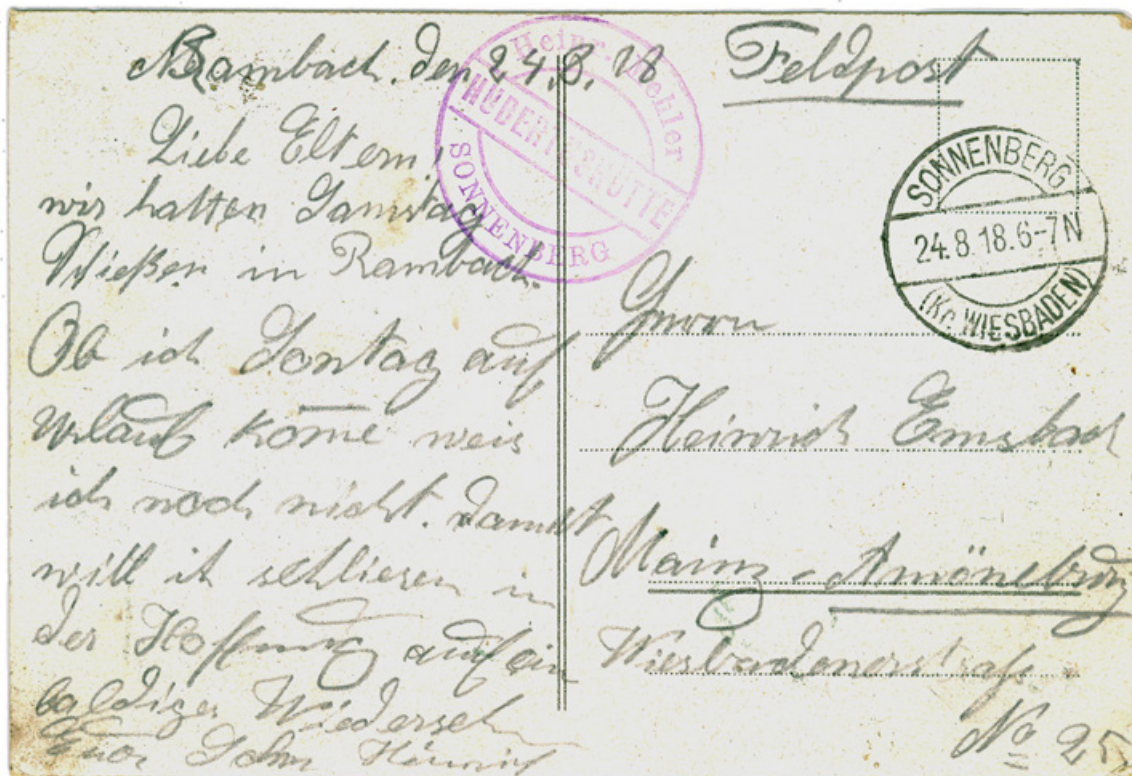 Rambach. den 24.8.18
Liebe Eltern!
wir hatten Samstag
Schießen in Rambach.
Ob ich Sontag auf
Urlaub kom̄e weis
ich noch nicht. Damit
will ich schliesen in
der Hoffnung auf ein
baldiges Wiedersehn
Euer Sohn Heinrich
Heinr. Köhler
HUBERTUSHÜTTE
SONNENBERG
Feldpost
SONNENBERG
24.8.18.6-7N
(Kr. WIESBADEN)
Herrn
Heinrich Emsbach
Mainz - Amöneburg
Wiesbadenerstraße
No 25